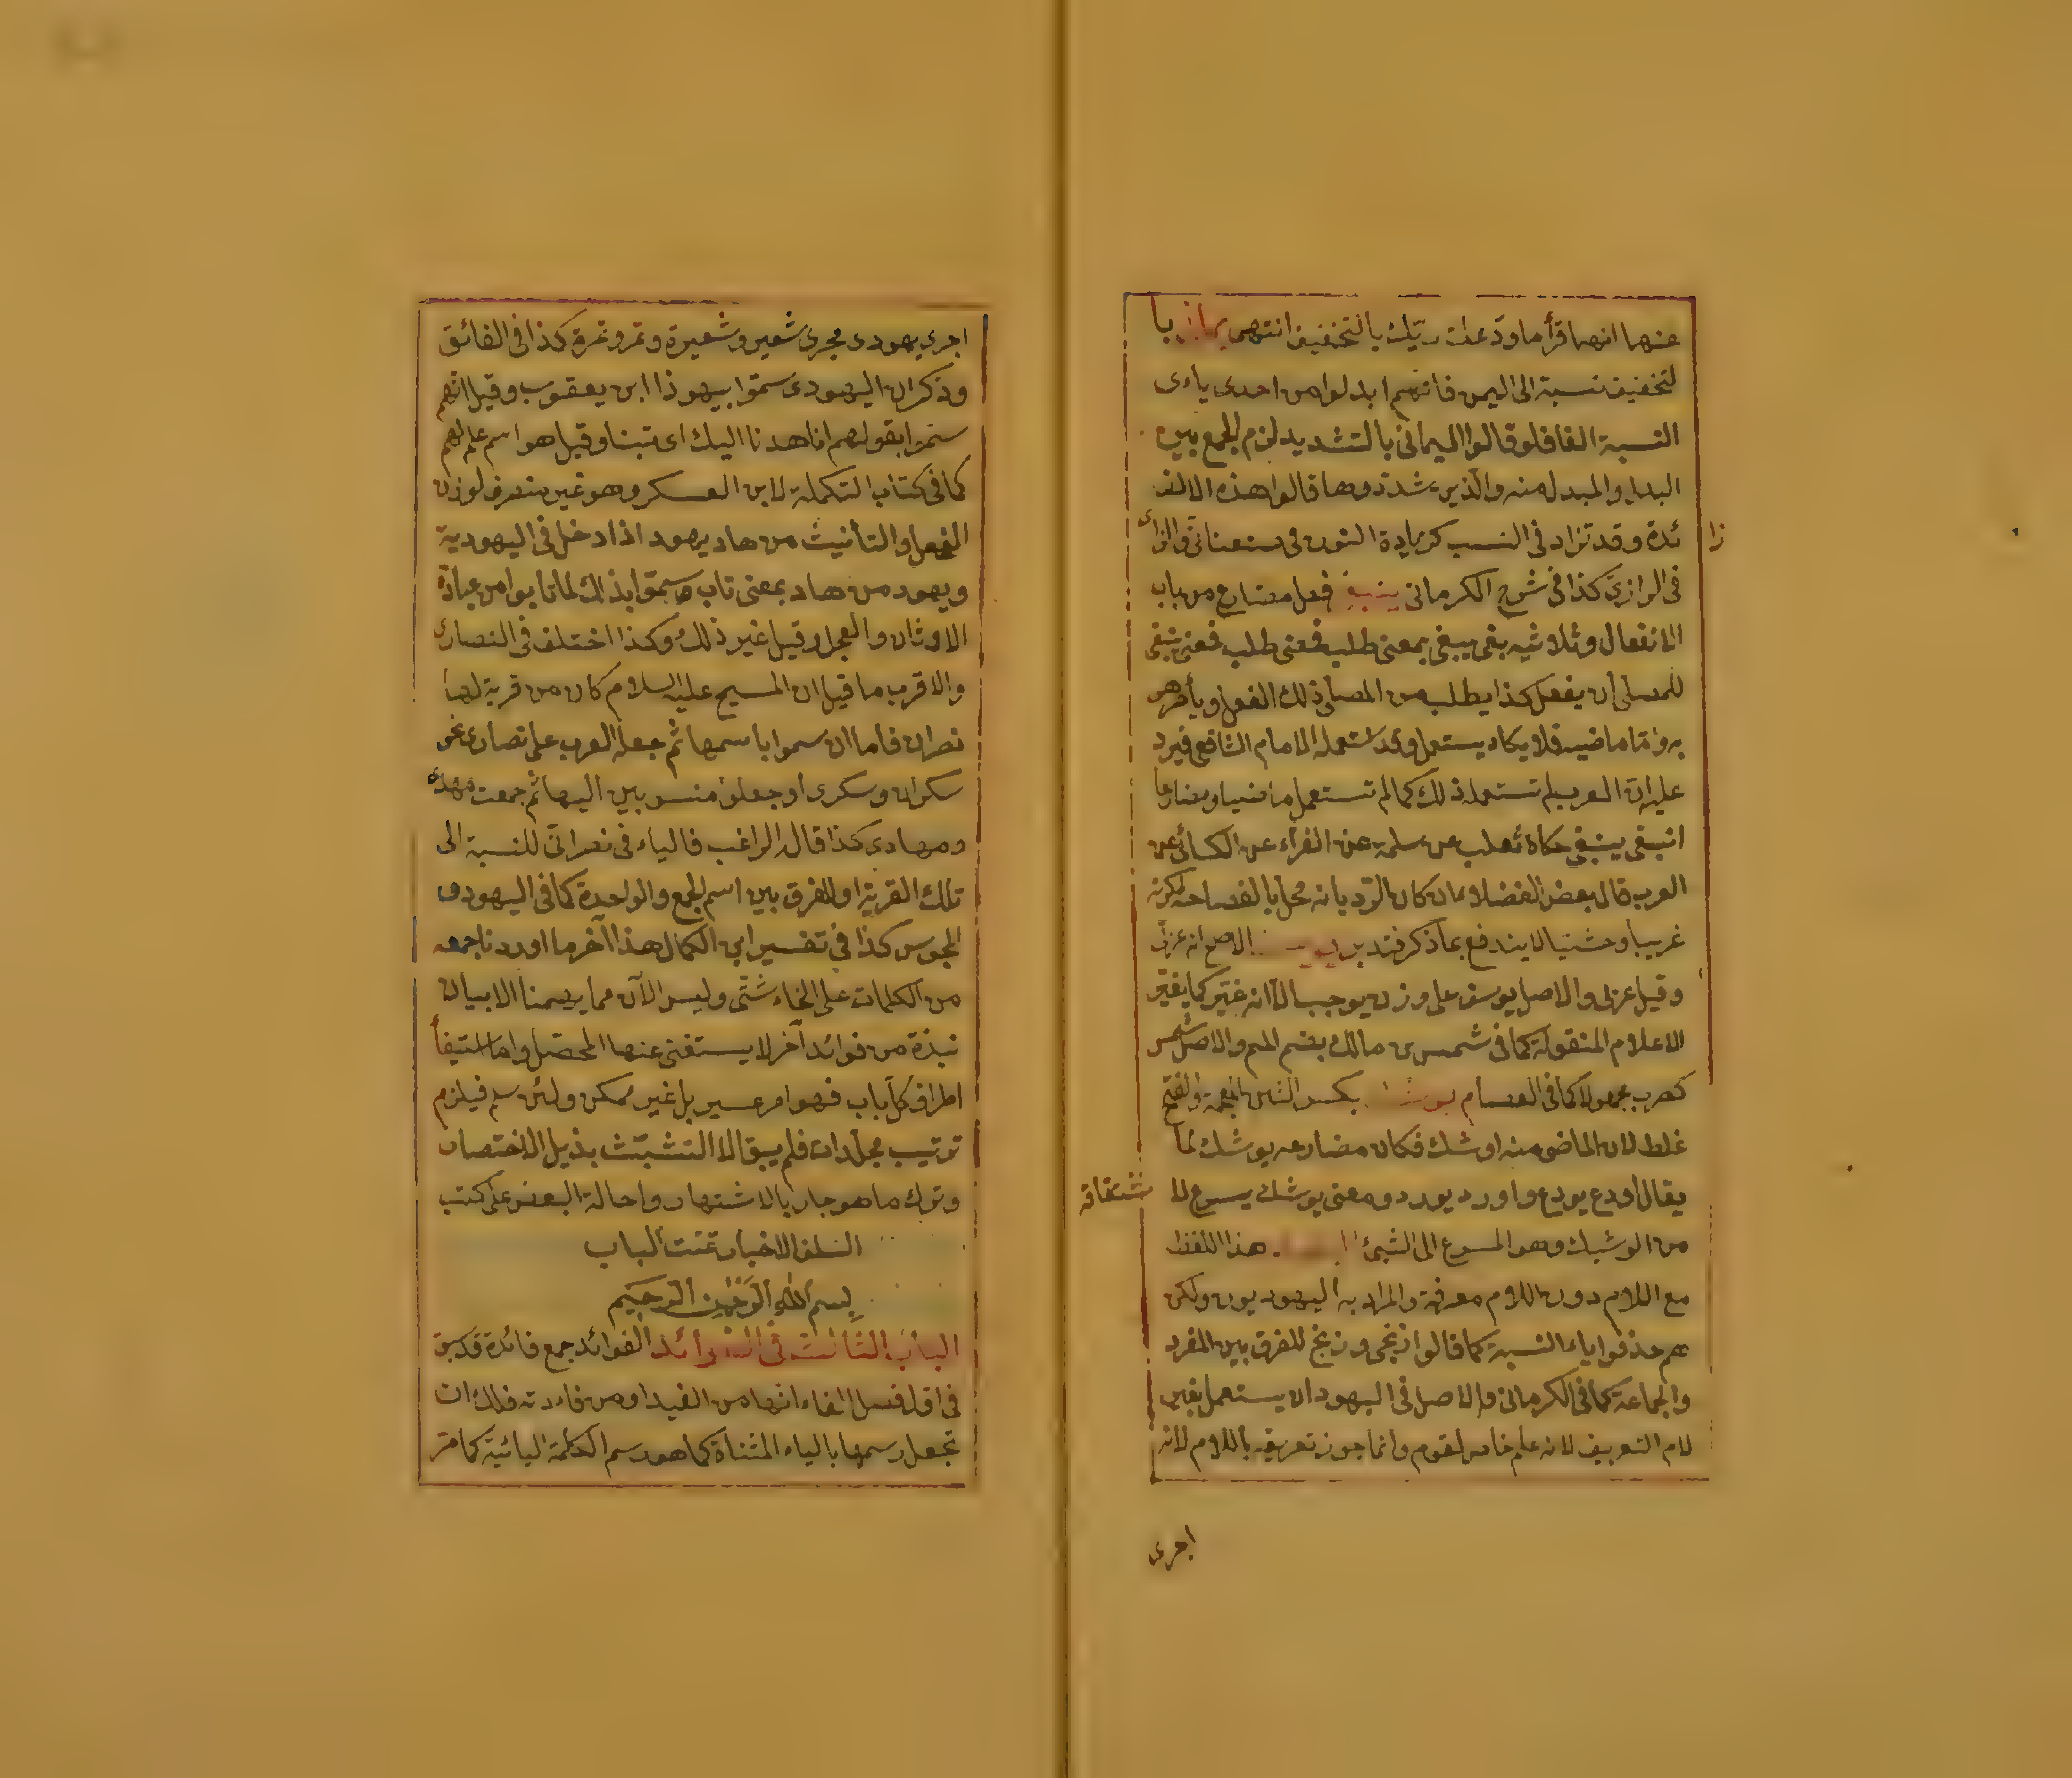 عنها انها قرأ ما ودعك ربك بالتخفيف انتهى يمانى با
لتخفيف نسبة الى اليمن فانهم ابدلوا من احدى ياءى
النسبة الفا فلو قالوا اليمانى بالتشديد لزم الجمع بين
البدل والمبدل منه والذين شددوها قالوا هذه الالف
زا
ئدة وقد تزاد فى النسب كزيادة النون فى صنعانى والزاى
فى الرازى كذا فى شرح الكرمانى ينبغى فعل مضارع من باب
الانفعال وثلاثيه بغى يبغى بمعنى طلب فمعنى ينبغى
للمصلى ان يفعل كذا يطلب من المصلى ذلك الفعل ويأمر هو
به واما ماضيه فلا يكاد يستعمل وقد استعمله الامام الشافعى فيرد
عليه ان العرب لم تستعمله ذلك كما لم تستعمل ماضيا ومضارعا
انبغى ينبغى حكاه ثعلب عن سلمة عن الفراء عن الكسائى عن
العرب قال بعض الفضلاء بان كان الرد بانه مخل بالفصاحة لكونه
غريبا وحشيا لا يندفع بما ذكر فتدبر يوسف الاصح انه عبرانى
وقيل عربى والاصل يوسف على وزن يوجب الا انه غير كما يغير
الاعلام المنقولة كما فى شمس بن مالك بضم الميم والاصل شمس
كضرب مجهولا كما فى العصام يوشك بكسر الشين المعجمة والفتح
غلط لان الماضى منه اوشك فكان مضارعه يوشك كما
يقال اودع يودع واورد يورد ومعنى يوشك يسرع لا
شتقاقه
من الوشيك وهو المسرع الى الشىء اليهود هذا اللفظ
مع اللام دون اللام معرفة والمراد به اليهوديون ولكن
هم حذفوا ياء النسبة كما قالوا زنجى وزنج للفرق بين المفرد
والجماعة كما فى الكرمانى والاصل فى اليهود ان يستعمل بغير
لام التعريف لانه علم خاص لقوم وانما جوز تعريفه باللام لانه
اجرى
اجرى يهودى مجرى شعير وشعيرة وتمر وتمرة كذا فى الفائق
وذكر ان اليهودى سموا بيهوذا ابن يعقوب وقيل انهم
سموا بقولهم انا هدنا اليك اى تبنا وقيل هو اسم علم لهم
كما فى كتاب التكملة لابن العسكر وهو غير منصرف لوزن
الفعل والتأنيث من هاد يهود اذا دخل فى اليهودية
ويهود من هاد بمعنى تاب سموا بذلك لما تابوا من عبادة
الاوثان والعجل وقيل غير ذلك وكذا اختلف فى النصارى
والاقرب ما قيل ان المسيح عليه السلام كان من قرية لها
نصران فاما ان سموا باسمها ثم جعله العرب على نصارى نحو
سكران وسكرى او جعلوا منسوبين اليها ثم جمعت مهدى
ومهادى كذا قال الراغب فالياء فى نصرانى للنسبة الى
تلك القرية او للفرق بين اسم الجمع والواحدة كما فى اليهود و
المجوس كذا فى تفسير ابن الكمال هذا آخر ما اوردنا جمعه
من الكلمات على انحاء شتى وليس الآن مما يهمنا الا بيان
نبذة من فوائد آخر لا يستغنى عنها المحصل واما استيفأ
اطراف كل باب فهو امر عسير بل غير ممكن ولئن سلم فيلزم
ترتيب مجلدات فلم يبق الا التشبث بذيل الاختصار
وترك ما هو جار بالاشتهار واحالة البعض على كتب
السلف الاخيار تمت الباب
بسم الله الرحمن الرحيم
الباب الثالث فى الفوائد الفوائد جمع فائدة قد سبق
فى اول فصل الفاء انها من الفيد او من فادته فلك ان
تجعل رسمها بالياء المثناة كما هو رسم الكلمة اليائية كما مر